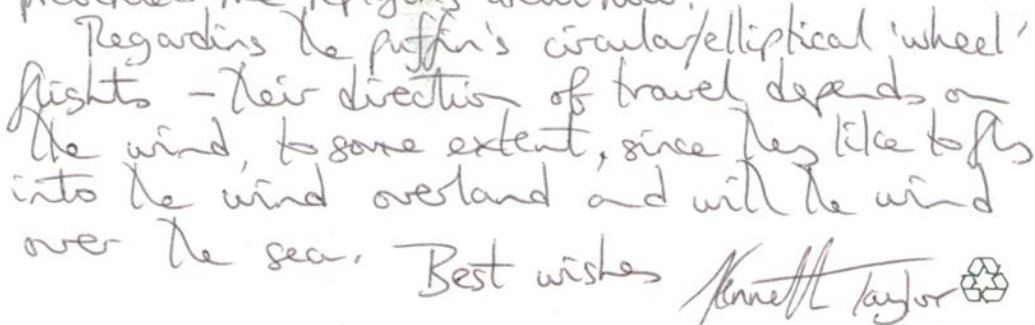 Regarding the puffin's circular/elliptical 'wheel'
flights – their direction of travel depends on
the wind, to some extent, since they like to fly
into the wind overland and with the wind
over the sea. Best wishes Kenneth Taylor